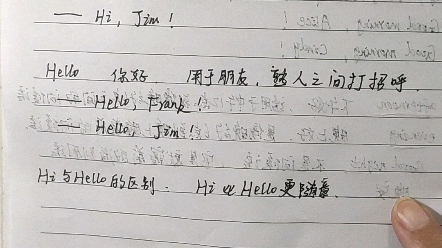 — Hi, Jim!
Hello 你好 用于朋友，熟人之间打招呼.
— Hello, Frank!
— Hello, Jim!
Hi与Hello的区别. Hi 比 Hello 更随意.